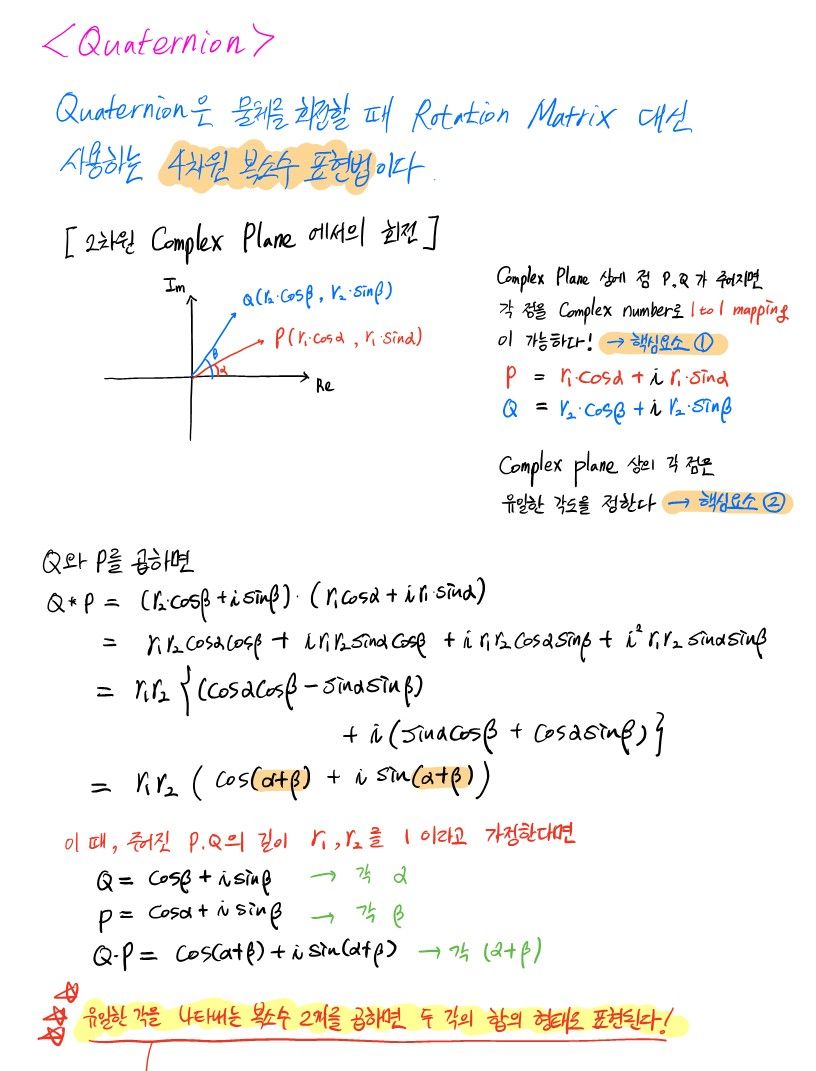 <Quaternion>
Quaternion은 물체를 회전할 때 Rotation Matrix 대신
사용하는 4차원 복소수 표현법이다.
[2차원 Complex Plane 에서의 회전]
Im
Q(r₂·cosβ, r₂·sinβ)
P(r₁·cosα, r₁·sinα)
θ
α
Re
Complex Plane 상에 점 P,Q가 주어지면
각 점을 Complex number로 1 to 1 mapping
이 가능하다! → 핵심요소 ①
P = r₁·cosα + i r₁·sinα
Q = r₂·cosβ + i r₂·sinβ
Complex plane 상의 각 점은
유일한 각도을 정한다 → 핵심요소 ②
Q와 P를 곱하면
Q*P = (r₂·cosβ + i sinβ)·(r₁cosα + i r₁·sinα)
= r₁r₂cosαcosβ + i r₁r₂sinαcosβ + i r₁r₂cosαsinβ + i² r₁r₂ sinαsinβ
= r₁r₂ {(cosαcosβ - sinαsinβ)
+ i (sinαcosβ + cosαsinβ)}
= r₁r₂ ( cos(α+β) + i sin(α+β))
이 때, 주어진 P.Q의 길이 r₁, r₂를 1 이라고 가정한다면
Q = cosβ + i sinβ → 각 α
P = cosα + i sinβ → 각 β
Q·P = cos(α+β) + i sin(α+β) → 각 (α+β)
유일한 각을 나타내는 복소수 2개를 곱하면 두 각의 합의 형태로 표현된다!